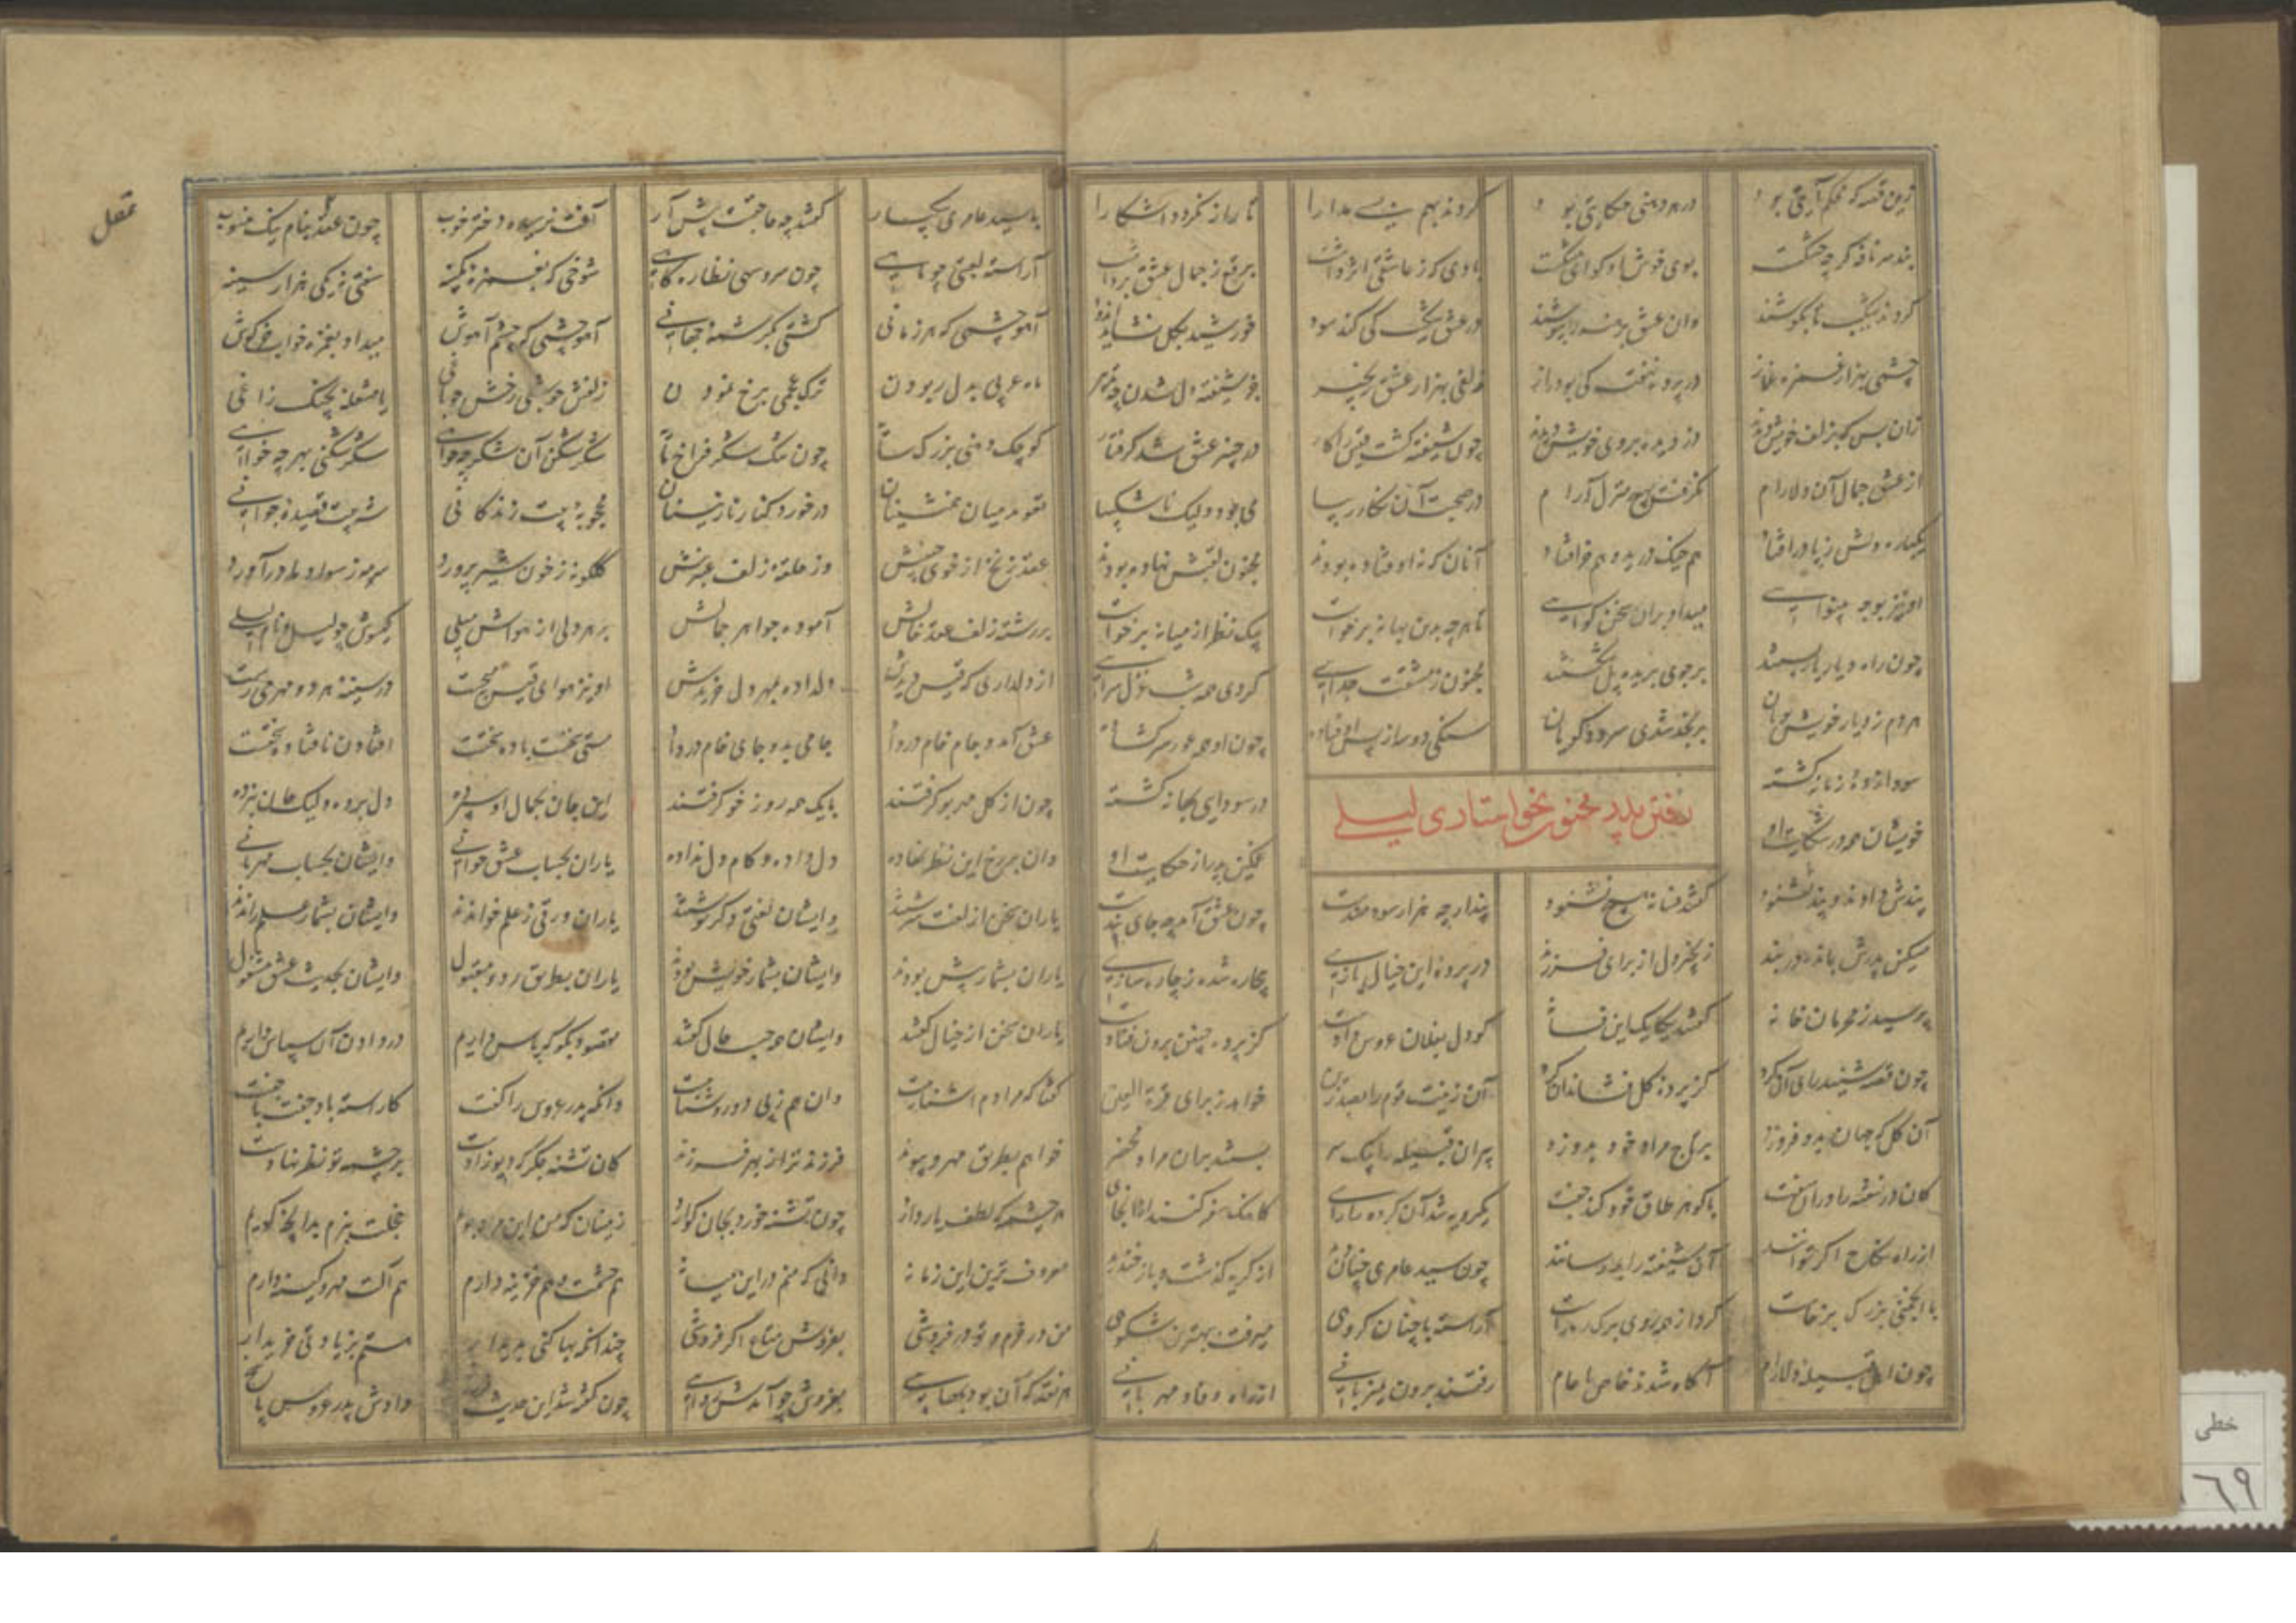 زین قصه که محکم آیتی بود در هر دهنی حکایتی بود کردند بهم بسی مدارا تا راز نگردد آشکارا
بند سر نافه گرچه خشکست بوی خوش او گوای مشکست بادی که ز عاشقی اثر داشت برقع ز جمال عشق برداشت
کردند شکیب تا بکوشند وان عشق برهنه را بپوشند در عشق شکیب کی کند سود خورشید بگل نشاید اندود
چشمی بهزار غمزه غماز در پرده نهفته کی بود راز زلفی بهزار عشق زنجیر جز شیفته دل شدن چه تدبیر
زان پس که بزلف خویش دزدیده بروی خویش دیدند چون شیفته گشت قیس را کار در چنبر عشق شد گرفتار
از عشق جمال آن دلارام نگرفت هیچ منزل آرام در صحبت آن نگار زیبا می بود ولیک ناشکیبا
یکباره دلش ز پا درافتاد هم خیک درید و هم خر افتاد آنان که نه اوفتاده بودند مجنون لقبش نهاده بودند
او نیز بوجه بینوایی میداد بران سخن گوایی تا هر چه بدین بهانه برخواست یک نظر از میانه برخواست
چون راه دیار یار بستند بر جوی بریده پل شکستند مجنون ز مشقت جدایی کردی همه شب غزل سرایی
هر دم ز دیار خویش پویان بر نجد شدی سرود گویان سنگی دو سه از پس اوفتاده چون او همه عور سرگشاده
سودا زده زمانه گشته در گشته
رفتن پدر مجنون بخواستاری لیلی
خویشان همه در شکایت او غمگین پدر از حکایت او
پندش دادند و پند نشنود گفتند فسانه هیچ نشنود پند ار چه هزار سودمندست چون عشق آمد چه جای پندست
مسکین پدرش بمانده در بند رنجور دل از برای فرزند در پرده این خیال بازی بیچاره شده ز چاره سازی
پرسید ز محرمان خانه گفتند یکایک این فسانه کو دل بفلان عروس دادست کز پرده چنین برون فتادست
چون قصه شنید رای آن کرد کز پرده گل فشاند آن گرد آن زینت قوم را بصد زین خواهد ز برای قرة العین
آن گل که جهان بدو فروزد بر تاج مراد خود بدوزد پیران قبیله را یک سر بستند بران مراد محضر
کان در نسفته را دران سفت با گوهر طاق خود کند جفت یکرویه شد آن گروه را رای کاهنگ سفر کنند ازانجای
از راه نکاح اگر توانند آن شیفته را بدو رسانند چون سید عامری چنان دید از گریه گذشت و باز خندید
با انجمنی بزرگ برخاست کرد از همه روی برگ ره راست آراسته با چنان گروهی میرفت بهترین شکوهی
چون اهل قبیله دلارام آگاه شدند خاص با عام رفتند برون بمیزبانی از راه وفا و مهربانی
با سید عامری بیکبار گفتند چه حاجتست پیش آر آفت نرسیده دختر خوب چون عقد بنام نیک منسوب
آراسته لعبتی چو ماهی چون سرو سهی نظاره گاهی شوخی که بغمزه کمینه سفتی نه یکی هزار سینه
آهو چشمی که هر زمانی کشتی بکرشمه جهانی آهو چشمی که چشم آهوش میداد بغمزه خواب خرگوش
ماه عربی بدل ربودن ترک عجمی برخ نمودن زلفش چو شبی رخش چراغی یا مشعله بچنگ زاغی
کوچک دهنی بزرگ سایه چون تنگ شکر فراخ مایه شکر شکن آن شکر چه خواهی شکر شکنی بهرچه خواهی
تعویذ میان همنشینان در خورد کنار نازنینان محجوبه بیت زندگانی شه بیت قصیده جوانی
عقد زنخ از خوی جبینش وز حلقه زلف عنبرینش گلگونه ز خون شیر پرورد سرمه ز سواد مادر آورد
بر رشته زلف عقد خالش آموده جواهر جمالش در هر دلی از هواش میلی گیسوش چو لیل و نام لیلی
از دلداری که قیس دیدش دلداد و بمهر دل خریدش او نیز هوای قیس میجست در سینه هر دو مهر می رست
عشق آمد و جام خام در داد جامی بدو جای خام در داد مستی نخست باده سختست افتادن نافتاده سختست
چون از گل مهر بو گرفتند با یک همه روز خو گرفتند این جان بجمال او سپرده دل برده ولیک جان نبرده
وان بر رخ این نظر نهاده دل داده و کام دل نداده یاران بحساب عشق خوانی وایشان بحساب مهربانی
یاران سخن از لغت سرشتند وایشان لغتی دگر نوشتند یاران ورقی ز علم خواندند وایشان بشمار علم راندند
یاران بشمار پیش بودند وایشان بشمار خویش بودند یاران بطریق رد و مقبول وایشان بحدیث عشق مشغول
یاران سخن از خیال گفتند وایشان همه حسب حال گفتند مقصود بگو که پاس داریم در دادن آن سپاس داریم
گفتا که مرادم آشناییست وان هم ز پی دو روشناییست وانگه پدر عروس را گفت کاراسته باد جفت با جفت
خواهم بطریق مهر و پیوند فرزند ترا ز بهر فرزند کان تشنه جگر که زادست بر چشمه تو نظر نهادست
هر چشمه که لطف یار دارد چون تشنه خورد بجان گوارد زینسان که من این مراد جویم خجلت نبرم بدانچه گویم
معروف ترین این زمانه دانی که منم در این میانه هم حشمت و هم خزینه دارم هم آلت مهر و کینه دارم
من در خرم و تو در فروشی بفروش متاع اگر فروشی چندانکه بها کنی پدیدار هستم بزیادتی خریدار
هر نقد که آن بود بهایی بفروش چو آمدش روایی چون گفته شد این حدیث فرخ دادش پدر عروس پاسخ
خطی
٦٩